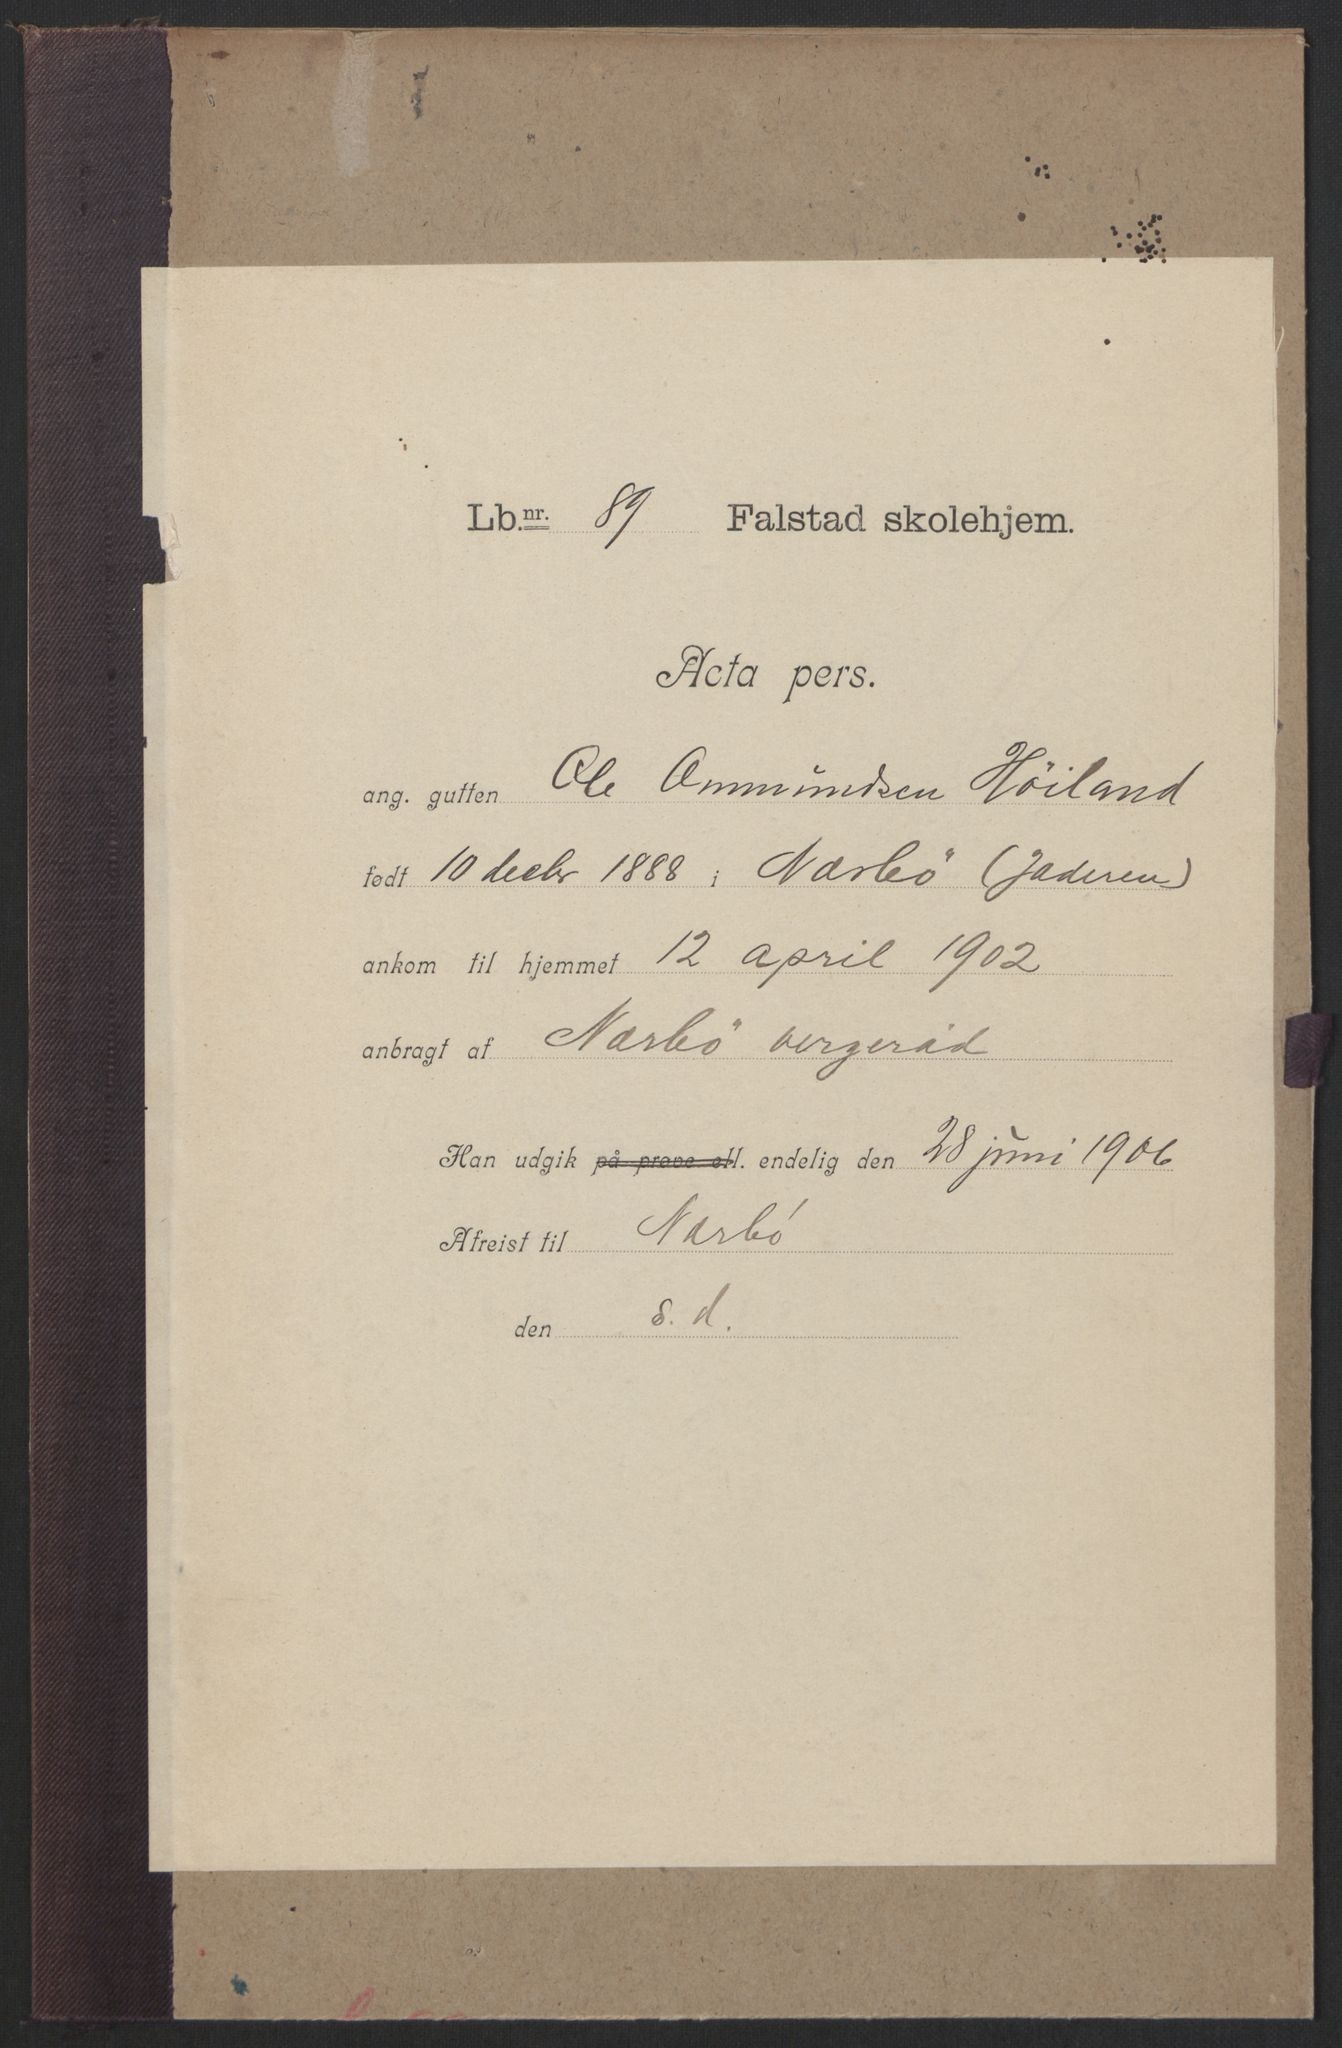 Lb.nr. 89 Falstad skolehjem.
Acta pers.
ang. gutten Ole Ommundsen Höiland
født 10 decbr 1888 i Nærbö (Jæderen)
ankom til hjemmet 12 april 1902
anbragt af Nærbö vergeråd
Han udgik på prøve ell. endelig den 28 juni 1906
Afreist til Nærbó
den s. d.